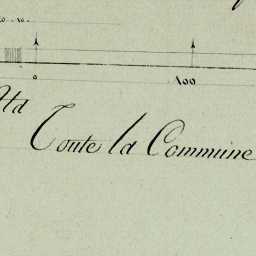 0 100
Toute la Commune